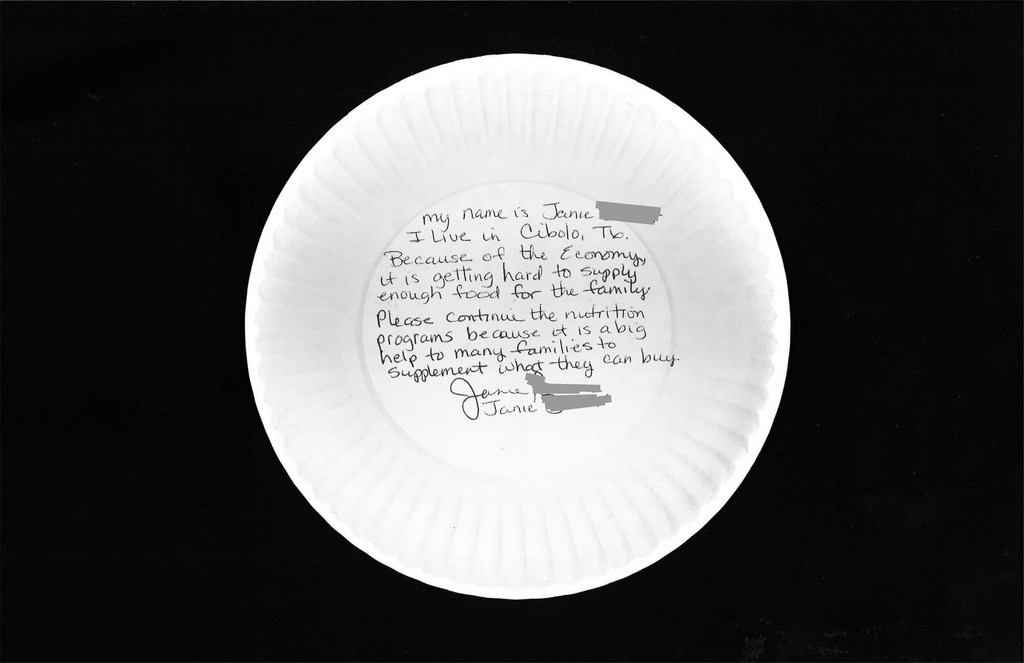 my name is Janie
I Live in Cibolo, Tx.
Because of the Economy,
it is getting hard to supply
enough food for the family.
Please continue the nutrition
programs because it is a big
help to many families to
supplement what they can buy.
Janie
Janie